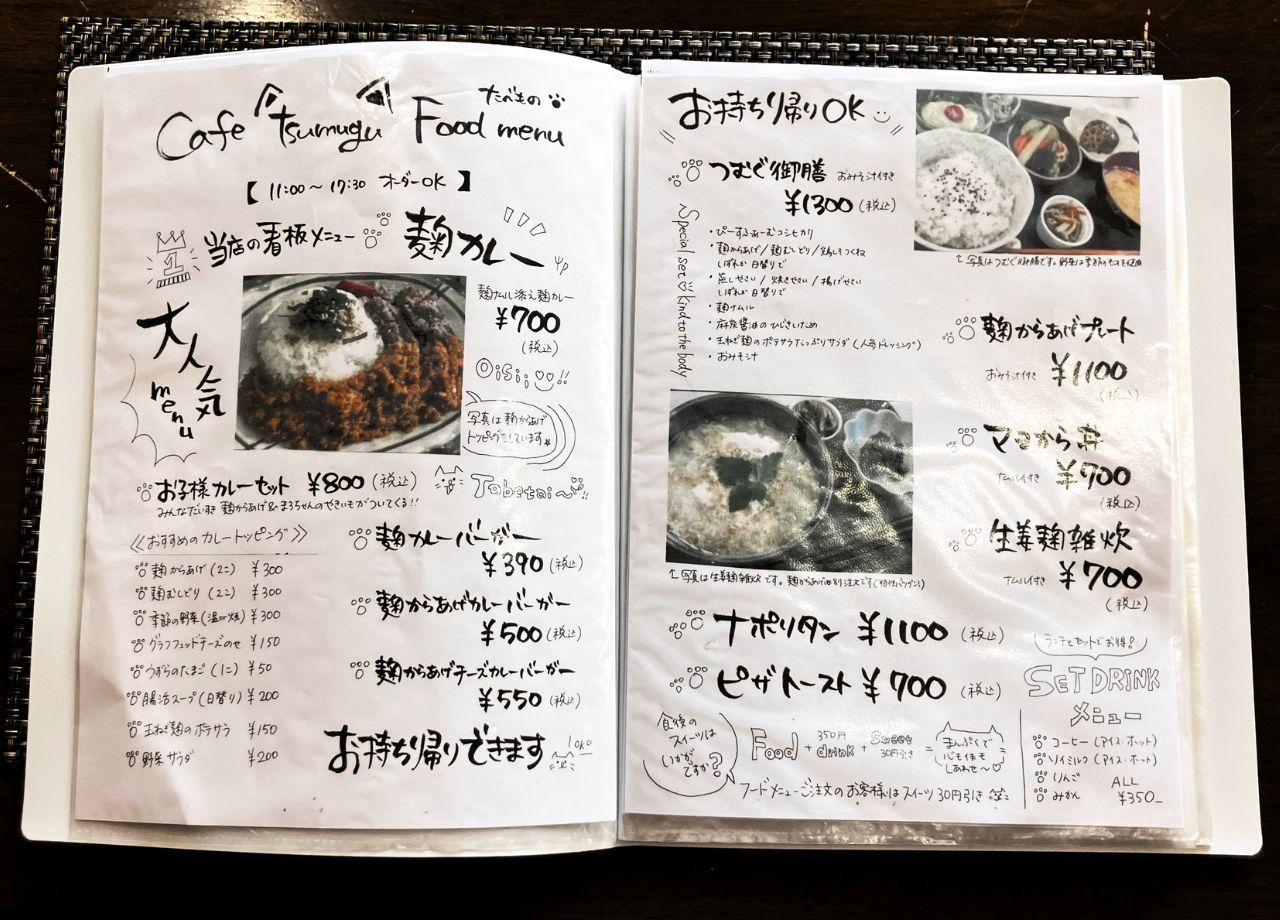 たべもの
Cafe tsumugu Food menu
【 11:00〜17:30 オーダーOK 】
1
当店の看板メニュー 麹カレー
大人気
menu
麹ナムル添え麹カレー
¥700
(税込)
Oisii!!
写真は麹からあげ
トッピングしています
お子様カレーセット ¥800 (税込)
みんなだいすき 麹からあげ&まろちゃんのやきいもがついてくる!!
Tabetai〜
《おすすめのカレートッピング》
麹からあげ(2コ) ¥300
麹むしどり(2コ) ¥300
季節の野菜(温or焼) ¥300
グラスフェッドチーズのせ ¥150
うずらのたまご(1コ) ¥50
腸活スープ(日替り) ¥200
玉ねぎ麹のポテサラ ¥150
野菜サラダ ¥200
麹カレーバーガー
¥390 (税込)
麹からあげカレーバーガー
¥500 (税込)
麹からあげチーズカレーバーガー
¥550 (税込)
お持ち帰りできます
お持ち帰りOK
つむぐ御膳 おみそ汁付き
¥1300 (税込)
Special set♡Kind to the body
・ぴーすふぁーむコシヒカリ
・麹からあげ/麹むしどり/鶏しそつくね
いずれか日替りで
・蒸しやさい/焼きやさい/揚げやさい
いずれか日替りで
・麹ナムル
・麻炭醤油のひじきいため
・玉ねぎ麹のポテサラたっぷりサラダ(人参ドレッシング)
・おみそ汁
↑写真はつむぐ御膳です。野菜は季節のものを使用
麹からあげプレート
おみそ汁付き ¥1100
(税込)
マヨから丼
ナムル付き ¥700
(税込)
生姜麹雑炊
ナムル付き ¥700
(税込)
↑写真は生姜麹雑炊です。麹からあげは別注文です(相性バツグン)
ナポリタン ¥1100 (税込)
ピザトースト ¥700 (税込)
食後の
スイーツは
いかがですか?
Food + 350円 drink + Sweet 30円引き =
まんぷくで
心も体も
しあわせ〜♡
フードメニューご注文のお客様はスイーツ30円引き
ランチとセットでお得!
SET DRINK
メニュー
コーヒー(アイス・ホット)
ソイミルク(アイス・ホット)
りんご
みかん
ALL
¥350-